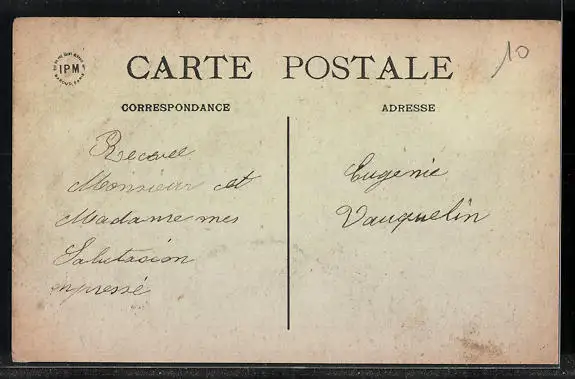 IPM
CARTE POSTALE
10
CORRESPONDANCE
ADRESSE
Recevee
Monsieur et
Madame mes
Salutasion
enpressé
Eugenie
Vauquelin